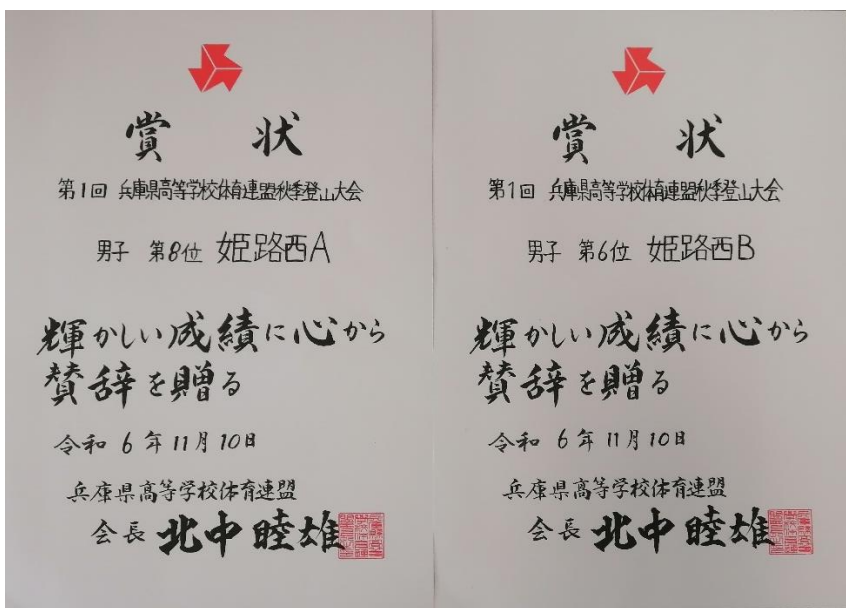 賞 状
第1回 兵庫県高等学校体育連盟秋季登山大会
男子 第8位 姫路西A
輝かしい成績に心から
賛辞を贈る
令和 6 年 11 月 10 日
兵庫県高等学校体育連盟
会長 北中睦雄
賞 状
第1回 兵庫県高等学校体育連盟秋季登山大会
男子 第6位 姫路西B
輝かしい成績に心から
賛辞を贈る
令和 6 年 11 月 10 日
兵庫県高等学校体育連盟
会長 北中睦雄